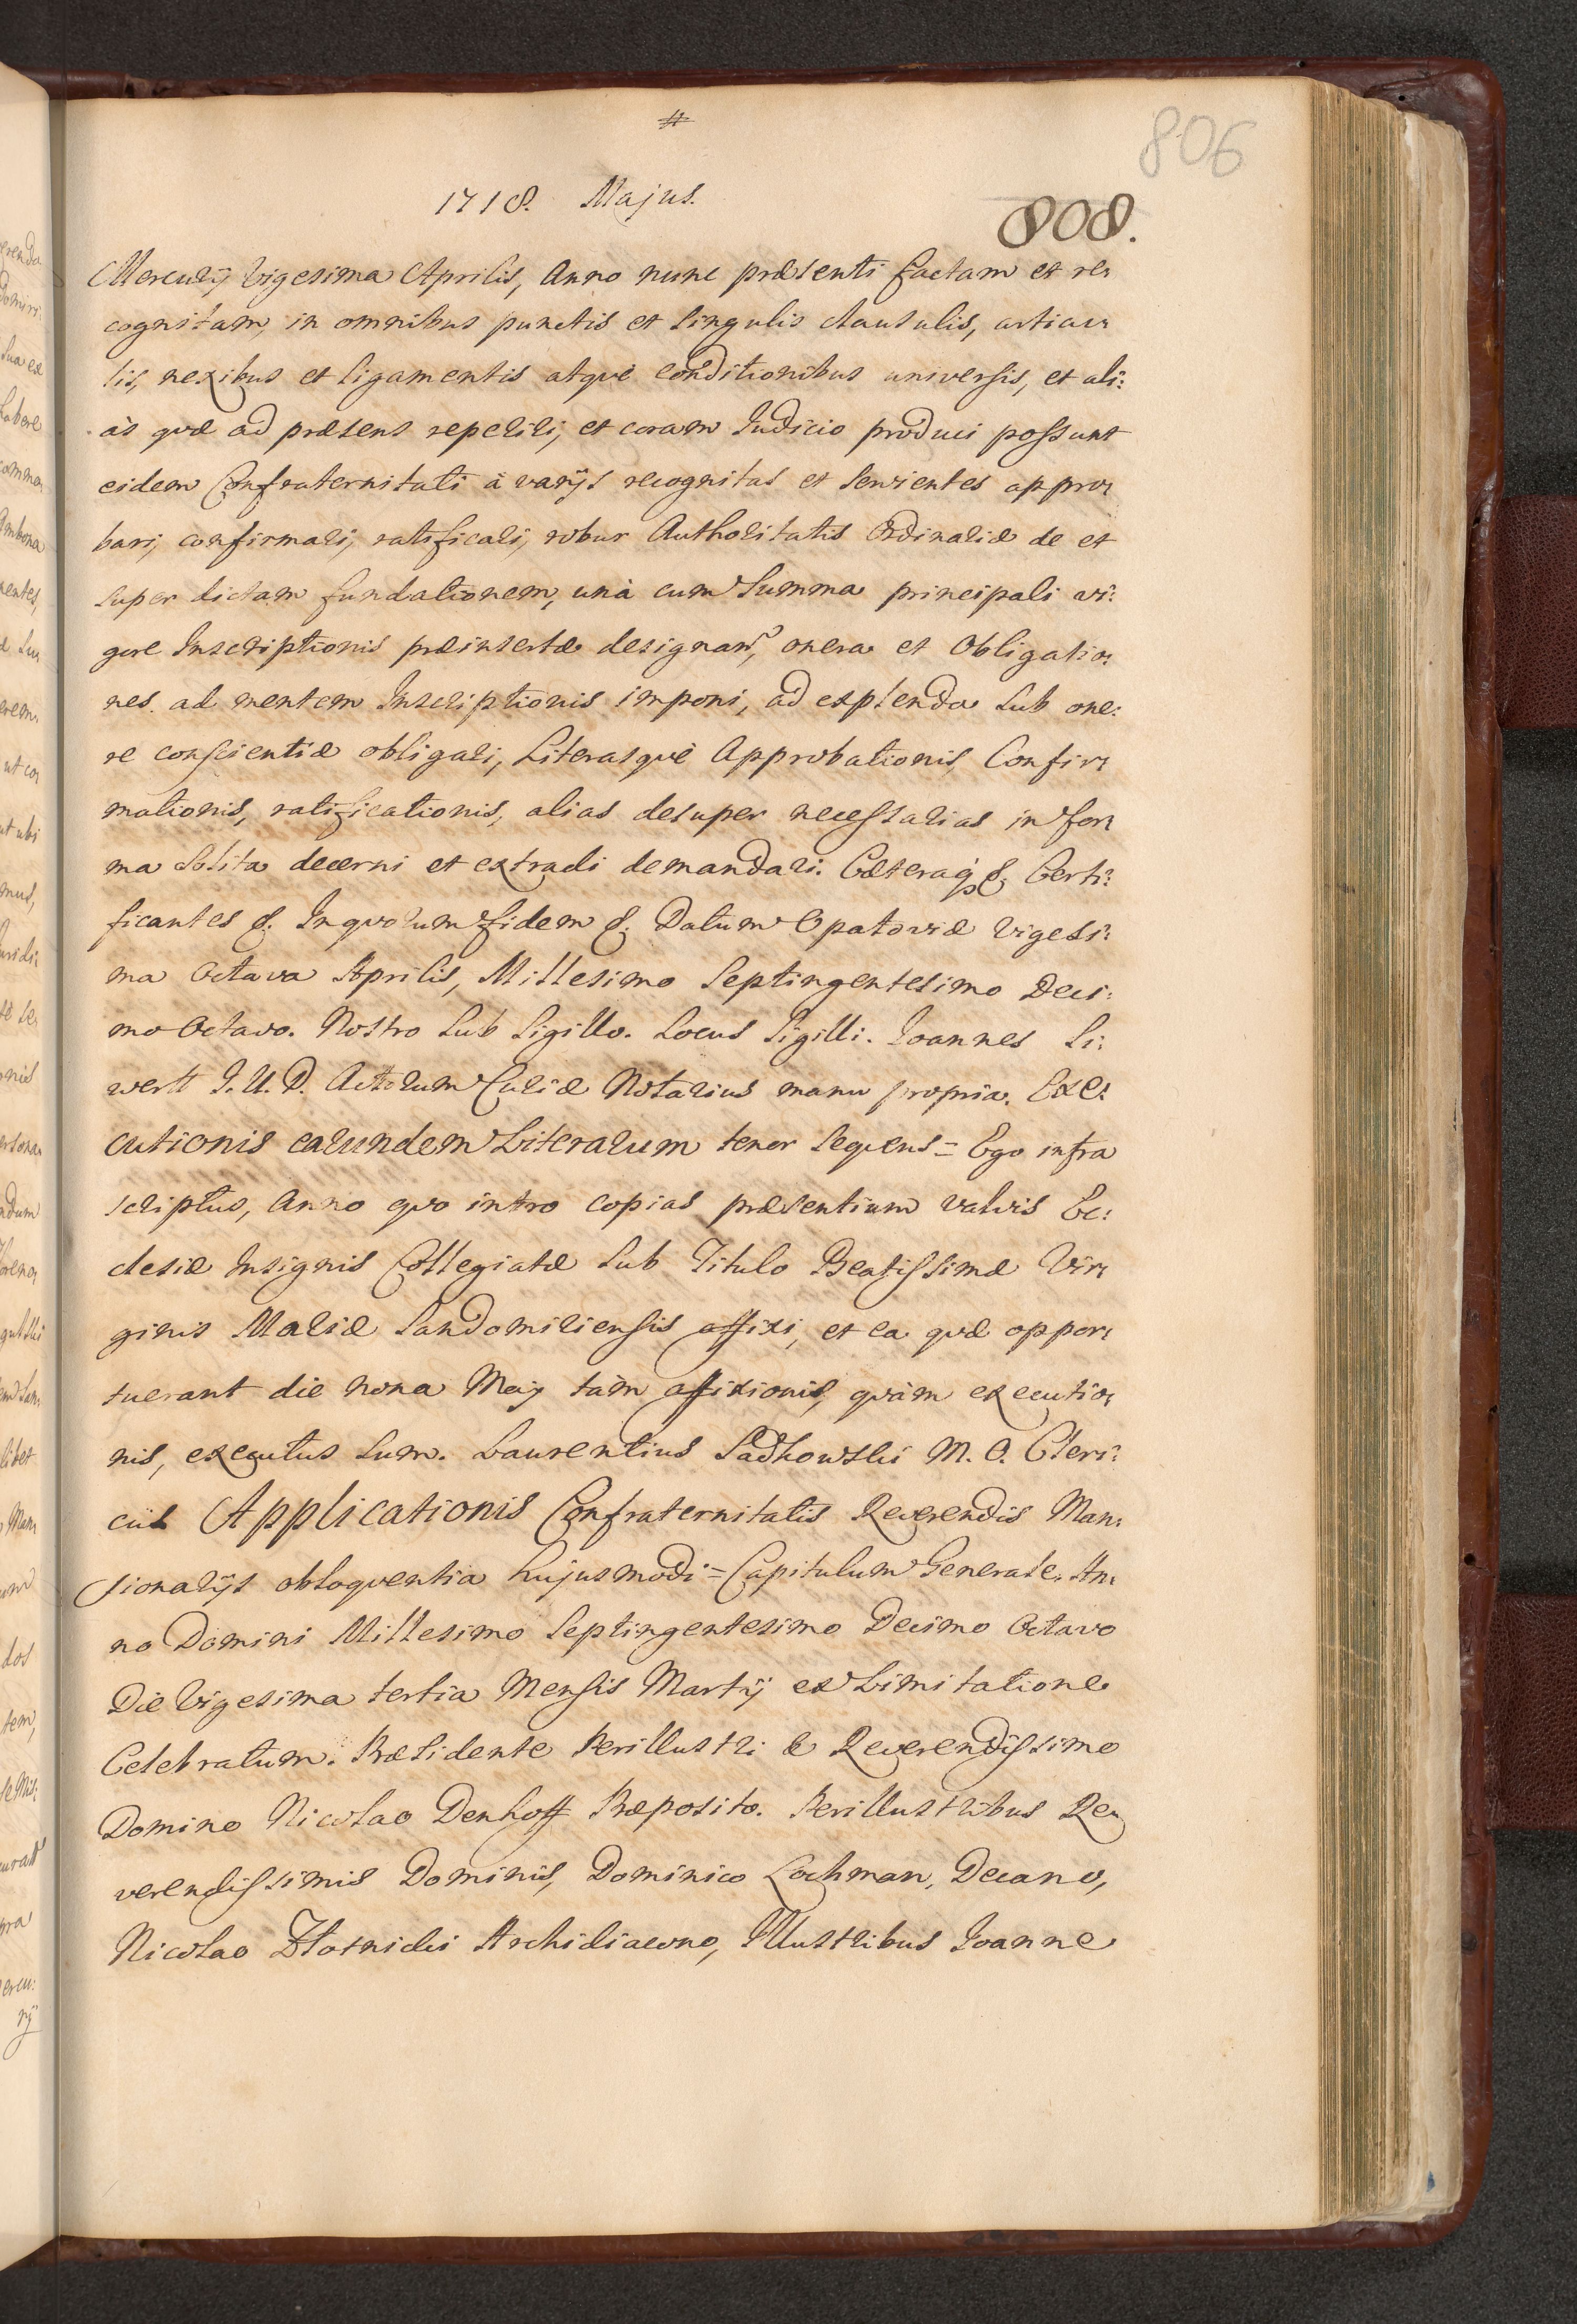 #
806
1718. Majus.
808.
Mercurij Vigesima Aprilis, Anno nunc præsenti factam et re:
cognitam, in omnibus punctis et singulis clausulis, articu:
lis, nexibus et ligamentis atque conditionibus universis, et ali:
as quæ ad præsens reperiri, et coram Iudicio produci possunt
eidem Confraternitati à varijs recognitas et servientes appro:
bari, confirmari, ratificari, robur Authoritatis Ordinariæ de et
super dictam fundationem, unà cum Summa principali vi:
gore Inscriptionis præinsertæ designari, onera et Obligatio:
nes ad mentem Inscriptionis imponi, ad explenda sub one:
re conscientiæ obligari, Literasquè Approbationis, Confir:
mationis, ratificationis, alias desuper necessarias in for:
ma solita decerni et extradi demandari. Cæteraq; &. Certi:
ficantes &. In quorum fidem &. Datum Opatoviæ Vigesi:
ma Octava Aprilis, Millesimo Septingentesimo Deci:
mo Octavo. Nostro sub Sigillo. Locus Sigilli. Joannes Si:
wertt J. U. D. Actorum Curiæ Notarius manu propria. Exe:
cutionis earundem Literarum tenor sequens = Ego infra
scriptus, Anno quo intro copias præsentium valvis Ec:
clesiæ Insignis Collegiatæ sub Titulo Beatissimæ Vir:
ginis Mariæ Sandomiriensis affixi, et ea quæ oppor:
tuerant die nona Maij tàm affixionis, quàm executio:
nis, executus sum. Laurentius Sadkowski M. O. Cleri:
cus Applicationis Confraternitatis Reverendis Man:
sionarijs obloquentia hujusmodi = Capitulum Generale. An:
no Domini Millesimo Septingentesimo Decimo Octavo
Die Vigesima tertia Mensis Martij ex Limitatione
Celebratum. Præsidente Perillustri & Reverendissimo
Domino Nicolao Denhoff Præposito. Perillustribus Re:
verendissimis Dominis, Dominico Lochman, Decano,
Nicolao Złotnicki Archidiacono, Illustribus Joanne